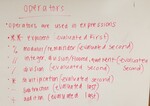 OPERATORS
*Operators are used in expressions
** Exponent (evaluated first)
% modulus/remainder (evaluated second)
// integer division/ quotient (evaluated second)
/ division (evaluated second)
* Multiplication (evaluated second)
- Subtraction (evaluated last)
+ addition (evaluated last)